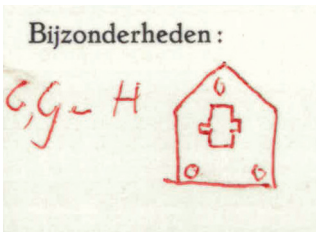 Bijzonderheden:
G, G - H